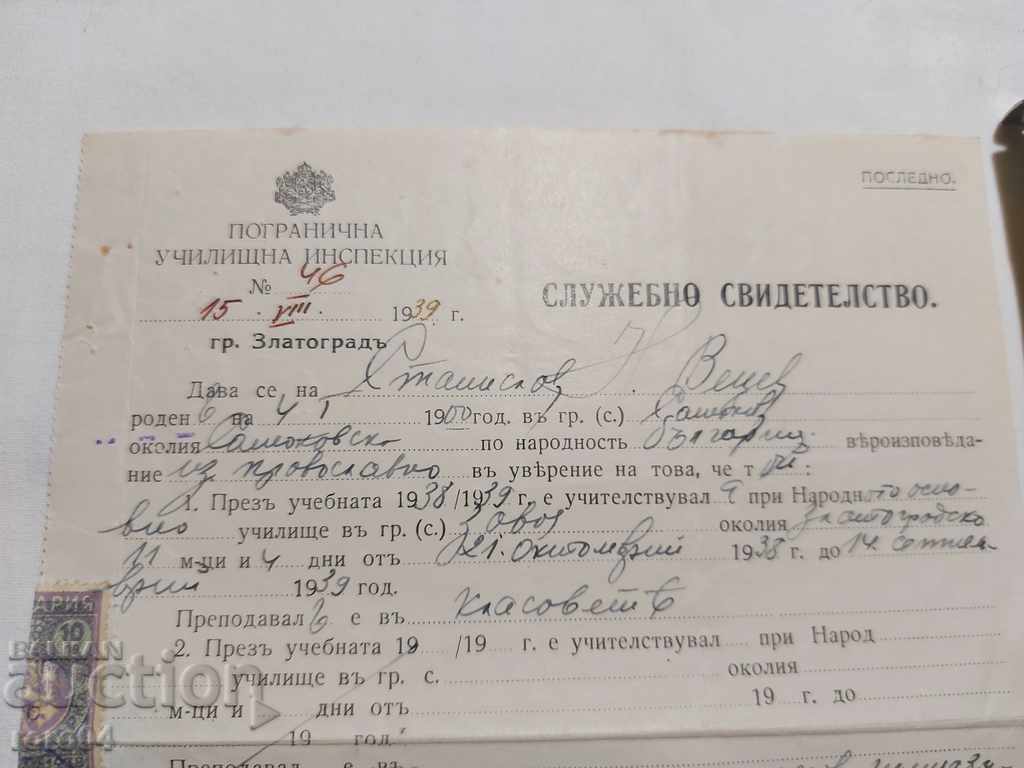 ПОСЛЕДНО.
ПОГРАНИЧНА
УЧИЛИЩНА ИНСПЕКЦИЯ
№ 46
15 . VIII . 1939 г.
гр. Златоградъ
СЛУЖЕБНО СВИДЕТЕЛСТВО.
Дава се на Станислав Н. Вецев
роден на 4 I 1900 год. въ гр. (с.)
околия Самоковска по народность българин вѣроизповѣда-
ние из. православно въ увѣрение на това, че т :
1. Презъ учебната 1938/1939 г. е учителствувал при Народното осно-
вно училище въ гр. (с.) Завод околия Златоградска
11 м-ци и 4 дни отъ 21. октомврий 1938 г. до 14 септем-
врий 1939 год.
Преподавал е въ
2. Презъ учебната 19 /19 г. е учителствувал при Народ
училище въ гр. с. околия
м-ци и дни отъ 19 г. до
19 год.
Преподавал е въ
АРИЯ
10
BALKAN
auction